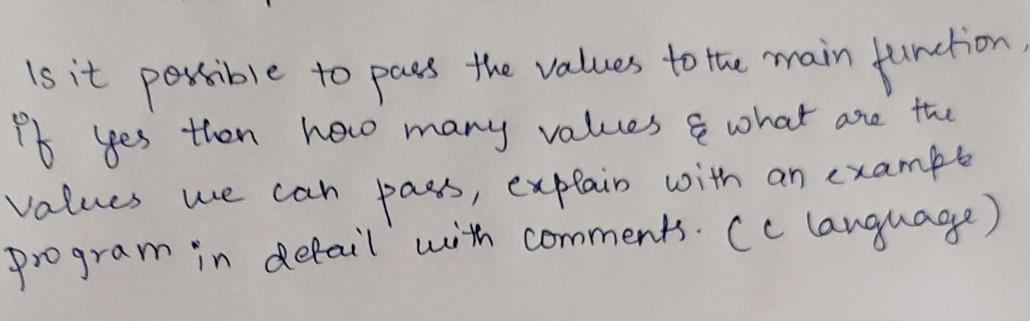 Is it possible to pass the values to the main function,
if yes then how many values & what are the
values we can pass, explain with an example
program in detail with comments. (c language)